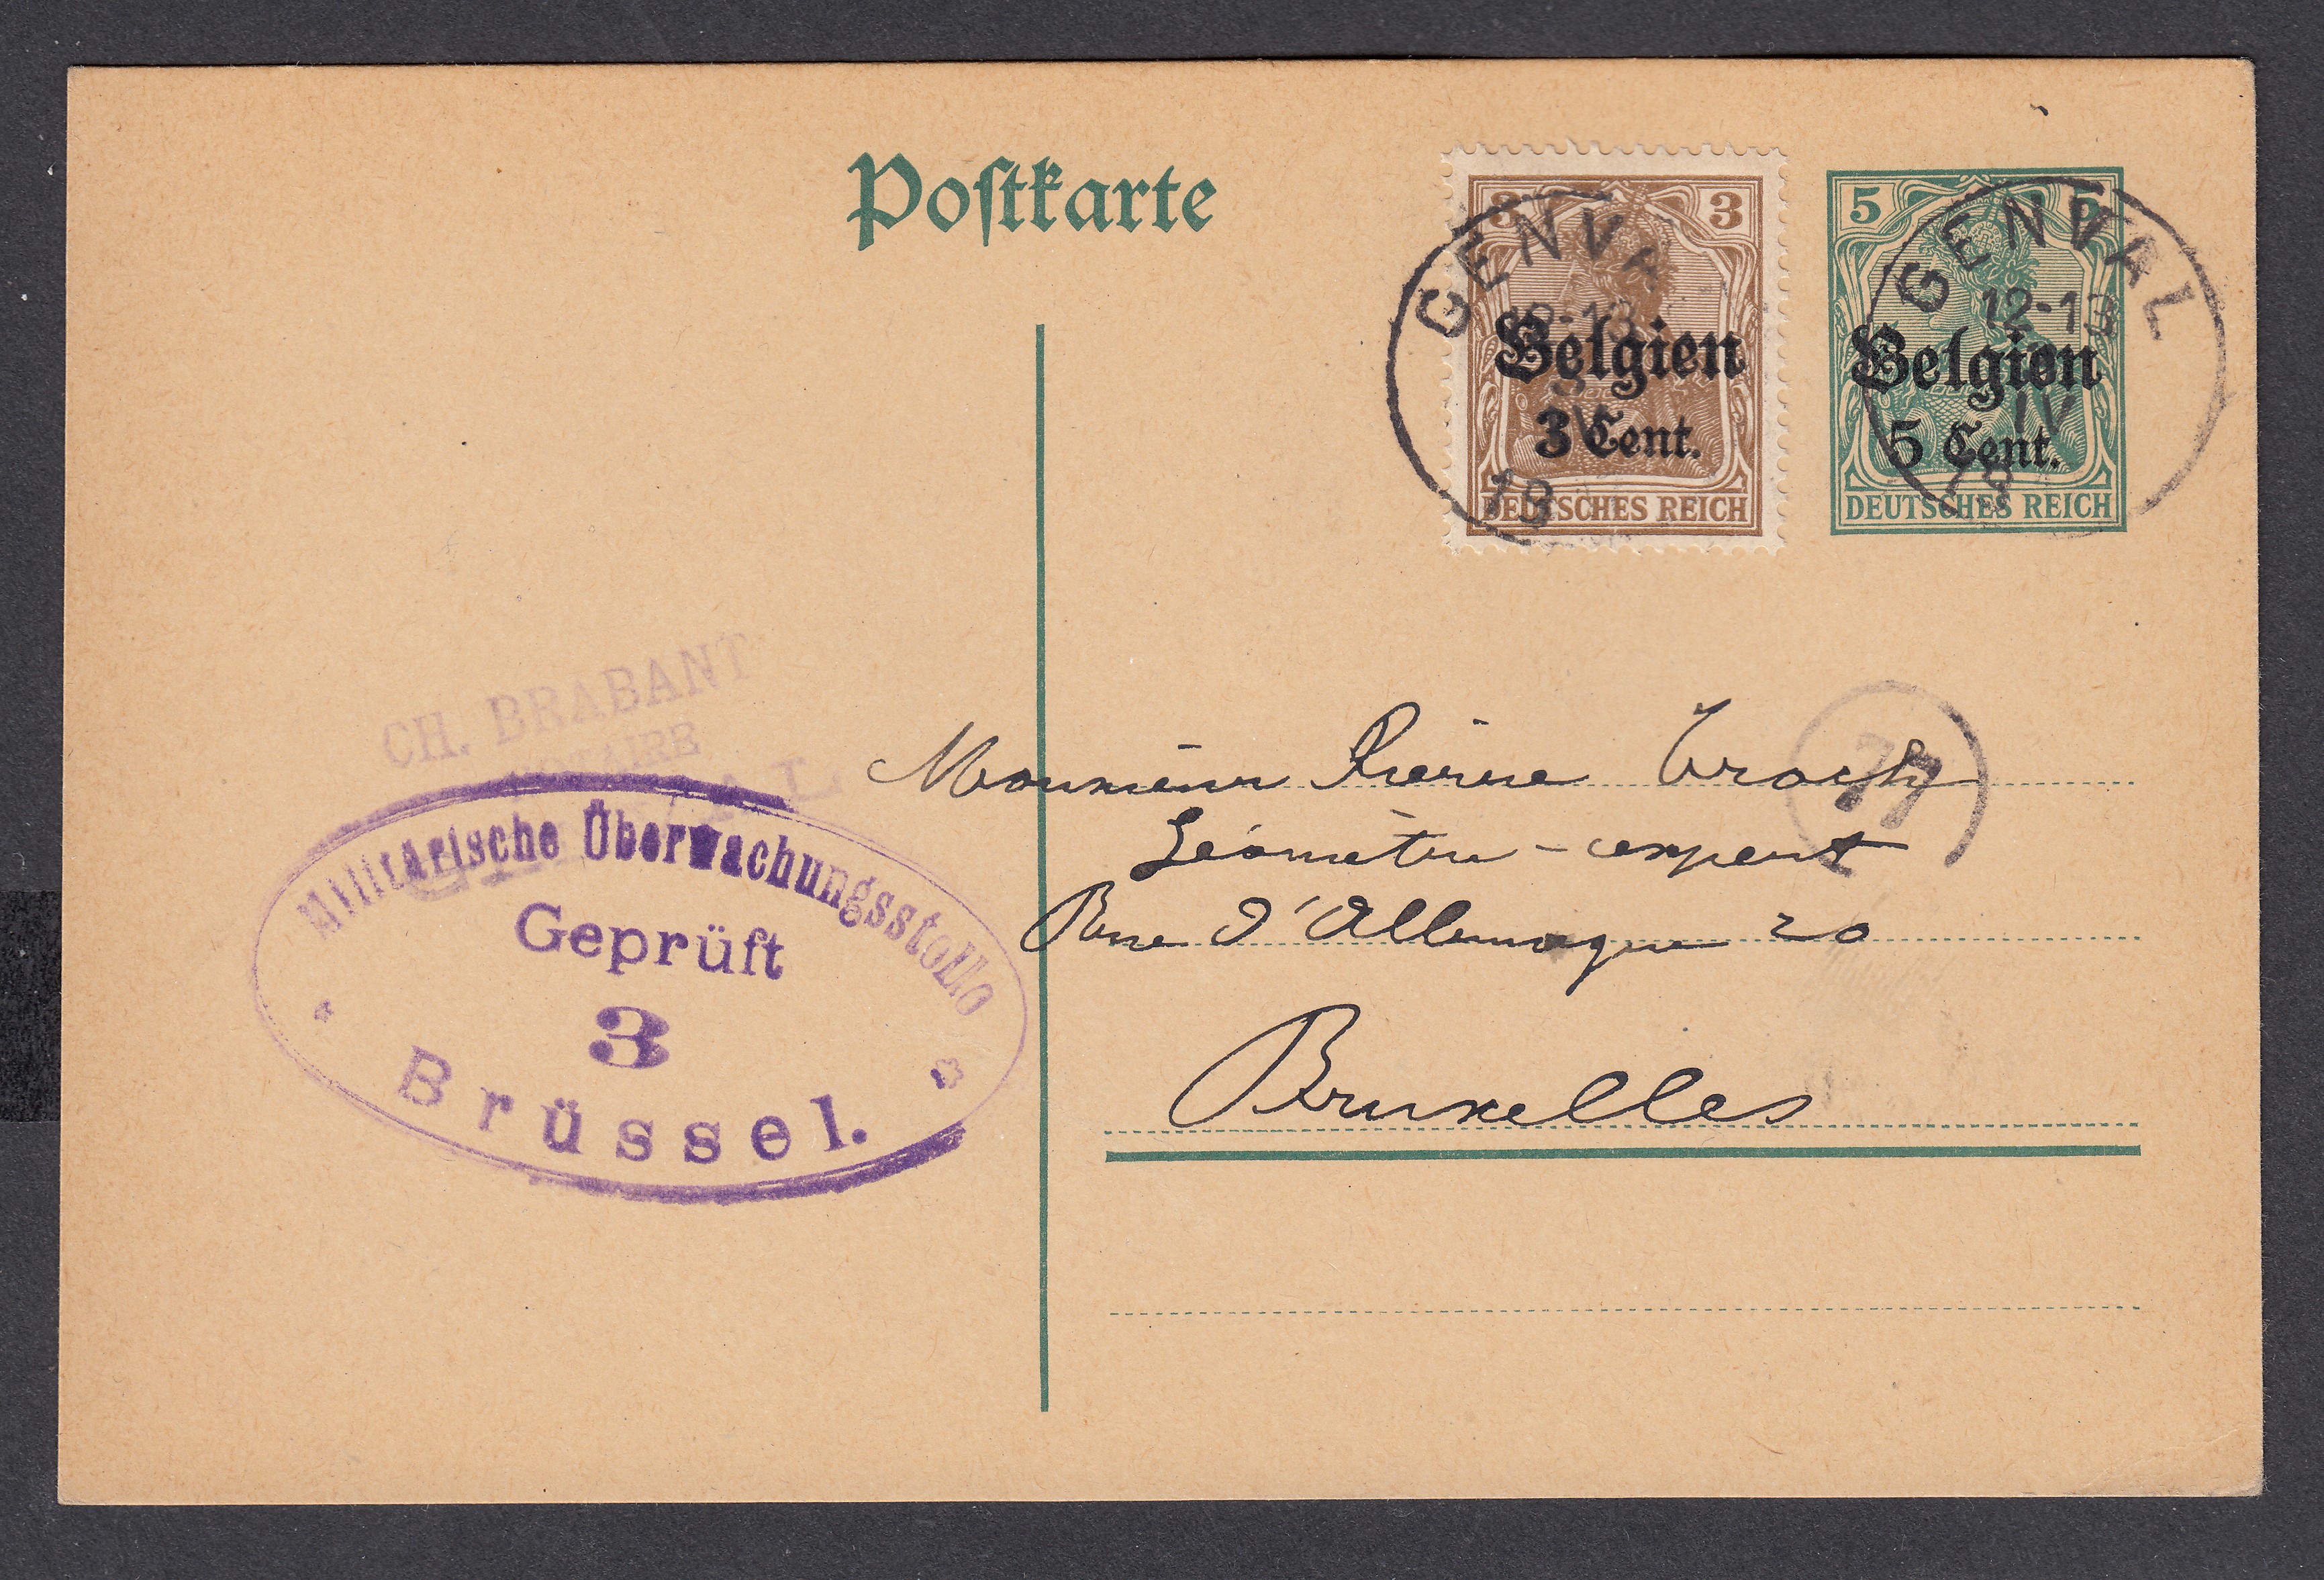 Postkarte
3 3
Belgien
3 Cent.
DEUTSCHES REICH
GENVA
12-13
IV
19
5 5
Belgien
5 Cent.
DEUTSCHES REICH
GENVAL
12-13
IV
CH. BRABANT
NOTAIRE
GENVAL
Militärische Überwachungsstelle
Geprüft
3
Brüssel.
77
Monsieur Pierre
Géomètre-expert
Rue d'Allemagne 20
Bruxelles